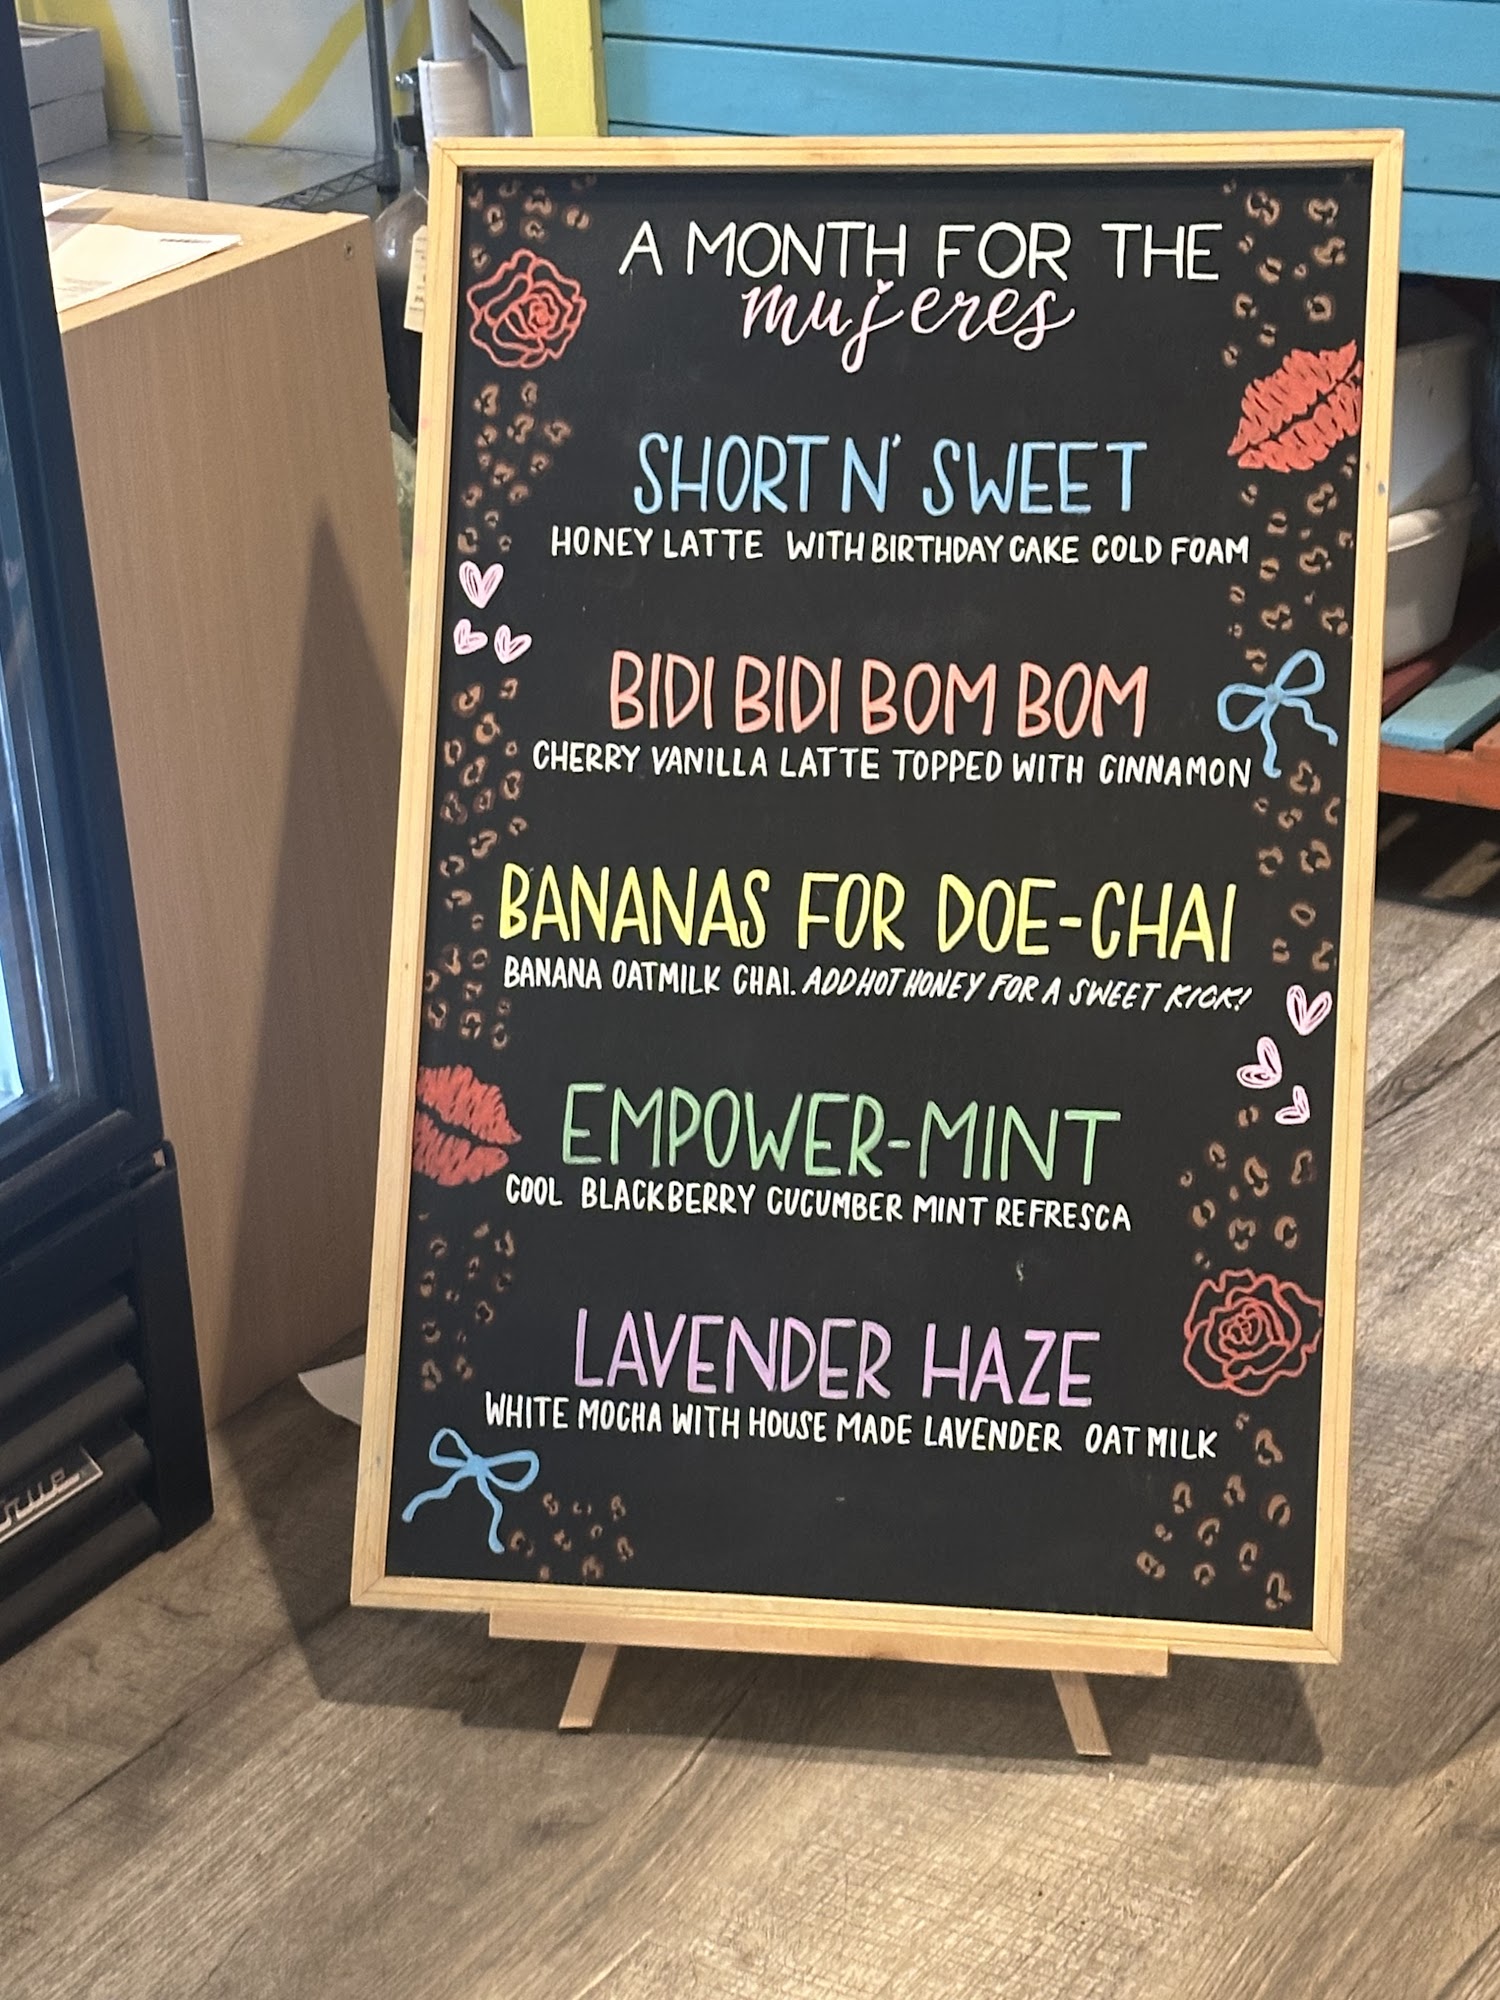 A MONTH FOR THE
mujeres
SHORT N' SWEET
HONEY LATTE WITH BIRTHDAY CAKE COLD FOAM
BIDI BIDI BOM BOM
CHERRY VANILLA LATTE TOPPED WITH CINNAMON
BANANAS FOR DOE-CHAI
BANANA OATMILK CHAI. ADD HOT HONEY FOR A SWEET KICK!
EMPOWER-MINT
COOL BLACKBERRY CUCUMBER MINT REFRESCA
LAVENDER HAZE
WHITE MOCHA WITH HOUSE MADE LAVENDER OAT MILK
True